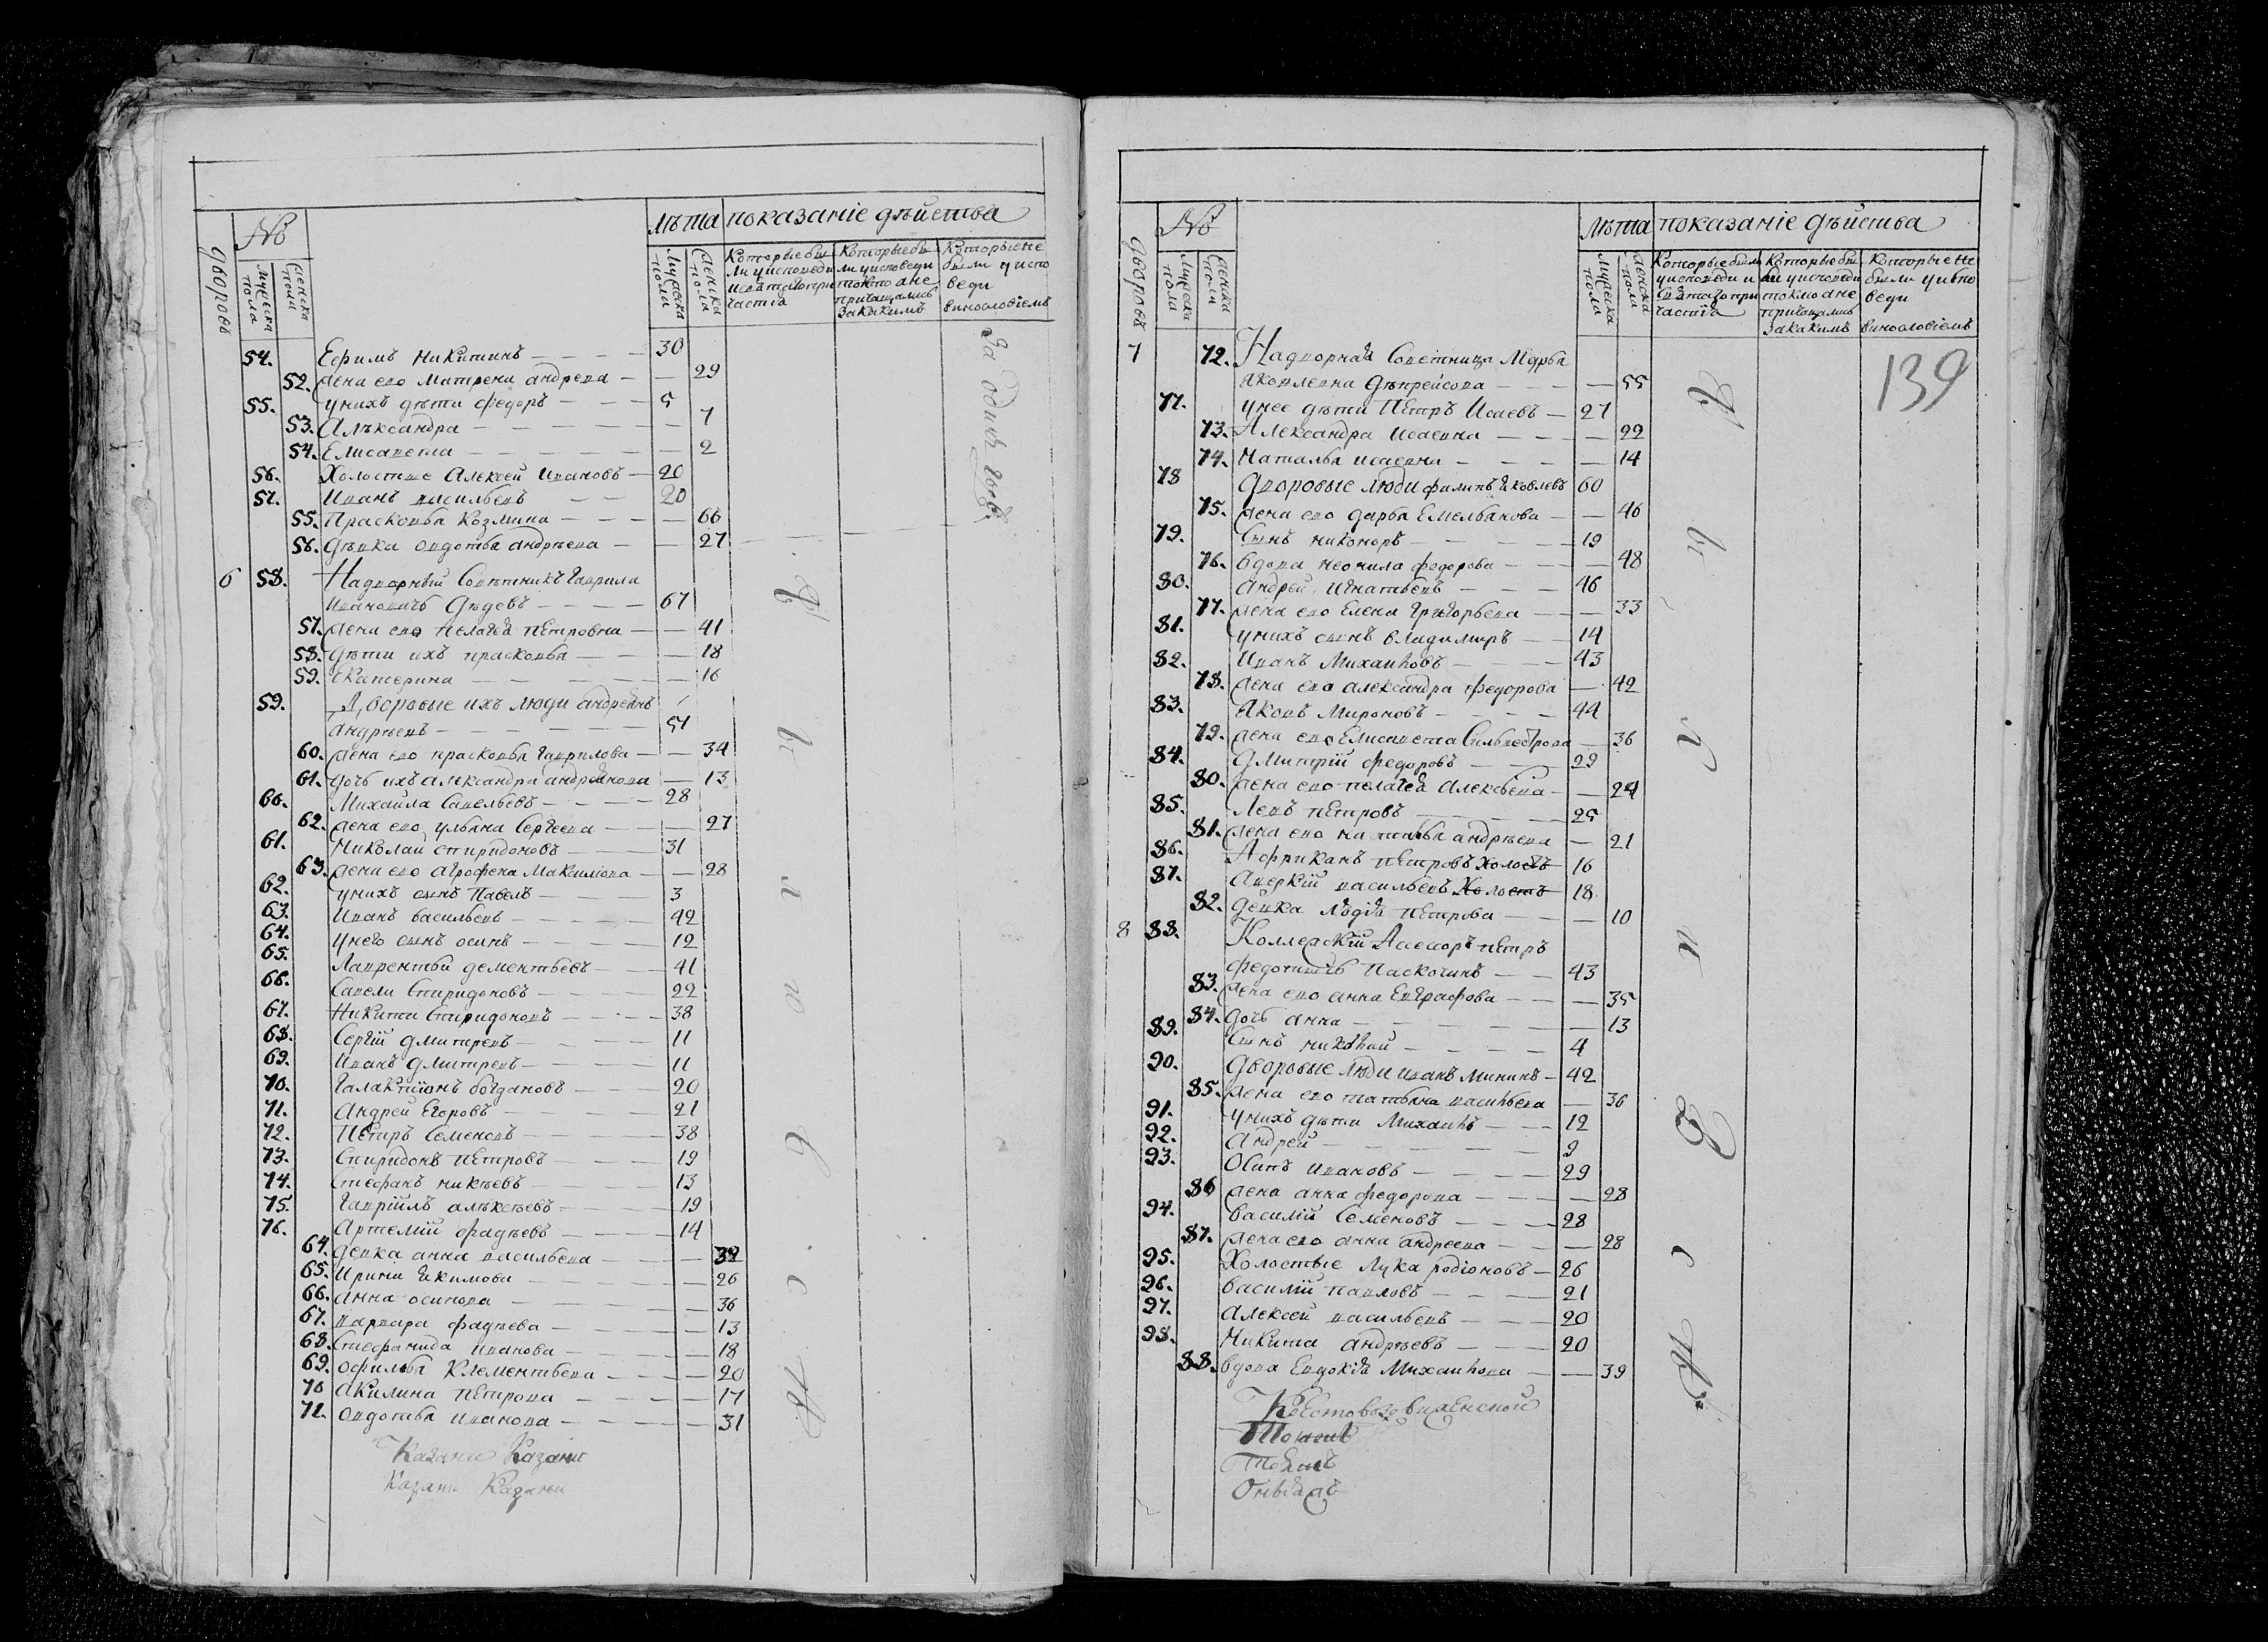 дворовъ
№
мужеска пола
женска пола
Лѣта
показанiе дѣйства
мужеска пола
женска пола
Которые были у исповеди и святаго причастiя
Которые были у исповеди токмо а не причащались за какимъ
Которые не были у исповеди
винословiемъ
54. Ефимъ Никитинъ 30
52. жена ево Матрена андреева 29
55. у нихъ дѣти Федоръ 5
53. Алѣксандра 7
54. Елисавета 2
56. Холостые Алексей Ивановъ 20
57. Иванъ васильевъ 20
55. Прасковья Козмина 66
56. Дѣвка овдотья андрѣева 27
6 58. Надворный Советникъ Гаврила
Ивановичь Дѣдевъ 67
57. жена ево Пелагея петровна 41
58. Дѣти ихъ прасковья 18
59. Екатерина 16
59. Дворовые ихъ люди андреянъ
андрѣевъ 57
60. жена ево прасковья гаврилова 34
61. дочь ихъ александра андреянова 13
60. Михайла Савельевъ 28
62. жена ево ульяна Сергеева 27
61. Николай спиридоновъ 31
63. жена ево агрофена Максимова 28
62. у нихъ сынъ Павелъ 3
63. Иванъ васильевъ 42
64. у него сынъ осипъ 12
65. Лаврентьи дементьевъ 41
66. Савели Спиридоновъ 22
67. Никита Спиридоновъ 38
68. Сергiй дмитревъ 11
69. Иванъ Дмитревъ 11
70. Галактiонъ богдановъ 20
71. андрей Егоровъ 21
72. Петръ Семеновъ 38
73. Спиридонъ петровъ 19
74. Стефанъ микѣевъ 13
75. Гаврiилъ алѣксѣевъ 19
76. Артемiй фадѣевъ 14
64. девка анна васильева 32
65. Ирина Якимова 26
66. анна осипова 36
67. варвара фадѣева 13
68. Стефанида иванова 18
69. офилья Клементьева 20
70 Акилина петрова 17
71. овдотья иванова 31
За одинъ годъ
Казани Казани
Казани Казани
дворовъ
№
мужеска пола
женска пола
Лѣта
показанiе дѣйства
мужеска пола
женска пола
Которые были у исповеди и святаго причастiя
Которые были у исповеди токмо а не причащались за какимъ
Которые не были у исповеди
винословiемъ
139
7 72. Надворная Советница Марфа
яковлевна Дѣпрейсова 55
77. у нее дѣти Петръ Исаевъ 27
73. Александра исаевна 22
74. Наталья исаевна 14
78 Дворовые люди филипъ яковлевъ 60
75. жена ево дарья Емельянова 46
79. Сынъ никоноръ 19
76. вдова неонила федорова 48
80. андрей игнатьевъ 46
77. жена ево Елена Григорьева 33
81. у нихъ сынъ владимиръ 14
82. Иванъ Михаиловъ 43
78. жена ево александра федорова 42
83. Яковъ Мироновъ 44
79. жена ево Елисавета Сильвестрова 36
84. Дмитрiй федоровъ 29
80. жена ево пелагея Алексѣева 24
85. Левъ петровъ 25
81. жена ево наталья андрѣева 21
86. Африканъ петровъ холостъ 16
87. Аверкiй васильевъ Холостъ 18
82. девка Лидiя петрова 10
8 88. Коллежскiй Асесоръ петръ
федотычь Паскочинъ 43
83. жена ево анна Евграфова 35
84. дочь анна 13
89. Сынъ николай 4
90. Дворовые люди иванъ мининъ 42
85. жена ево татьяна васильева 36
91. у нихъ дѣти Михаилъ 12
92. Андрей 9
93. Осипъ ивановъ 29
86 жена анна федорова 28
94. василiй Семеновъ 28
87. жена ево анна андреева 28
95. Холостые лука родiоновъ 26
96. василiй павловъ 21
97. Алексей васильевъ 20
98. Никита андрѣевъ 20
88. вдова Евдокiя Михаилова 39
Крестовоздвиженской